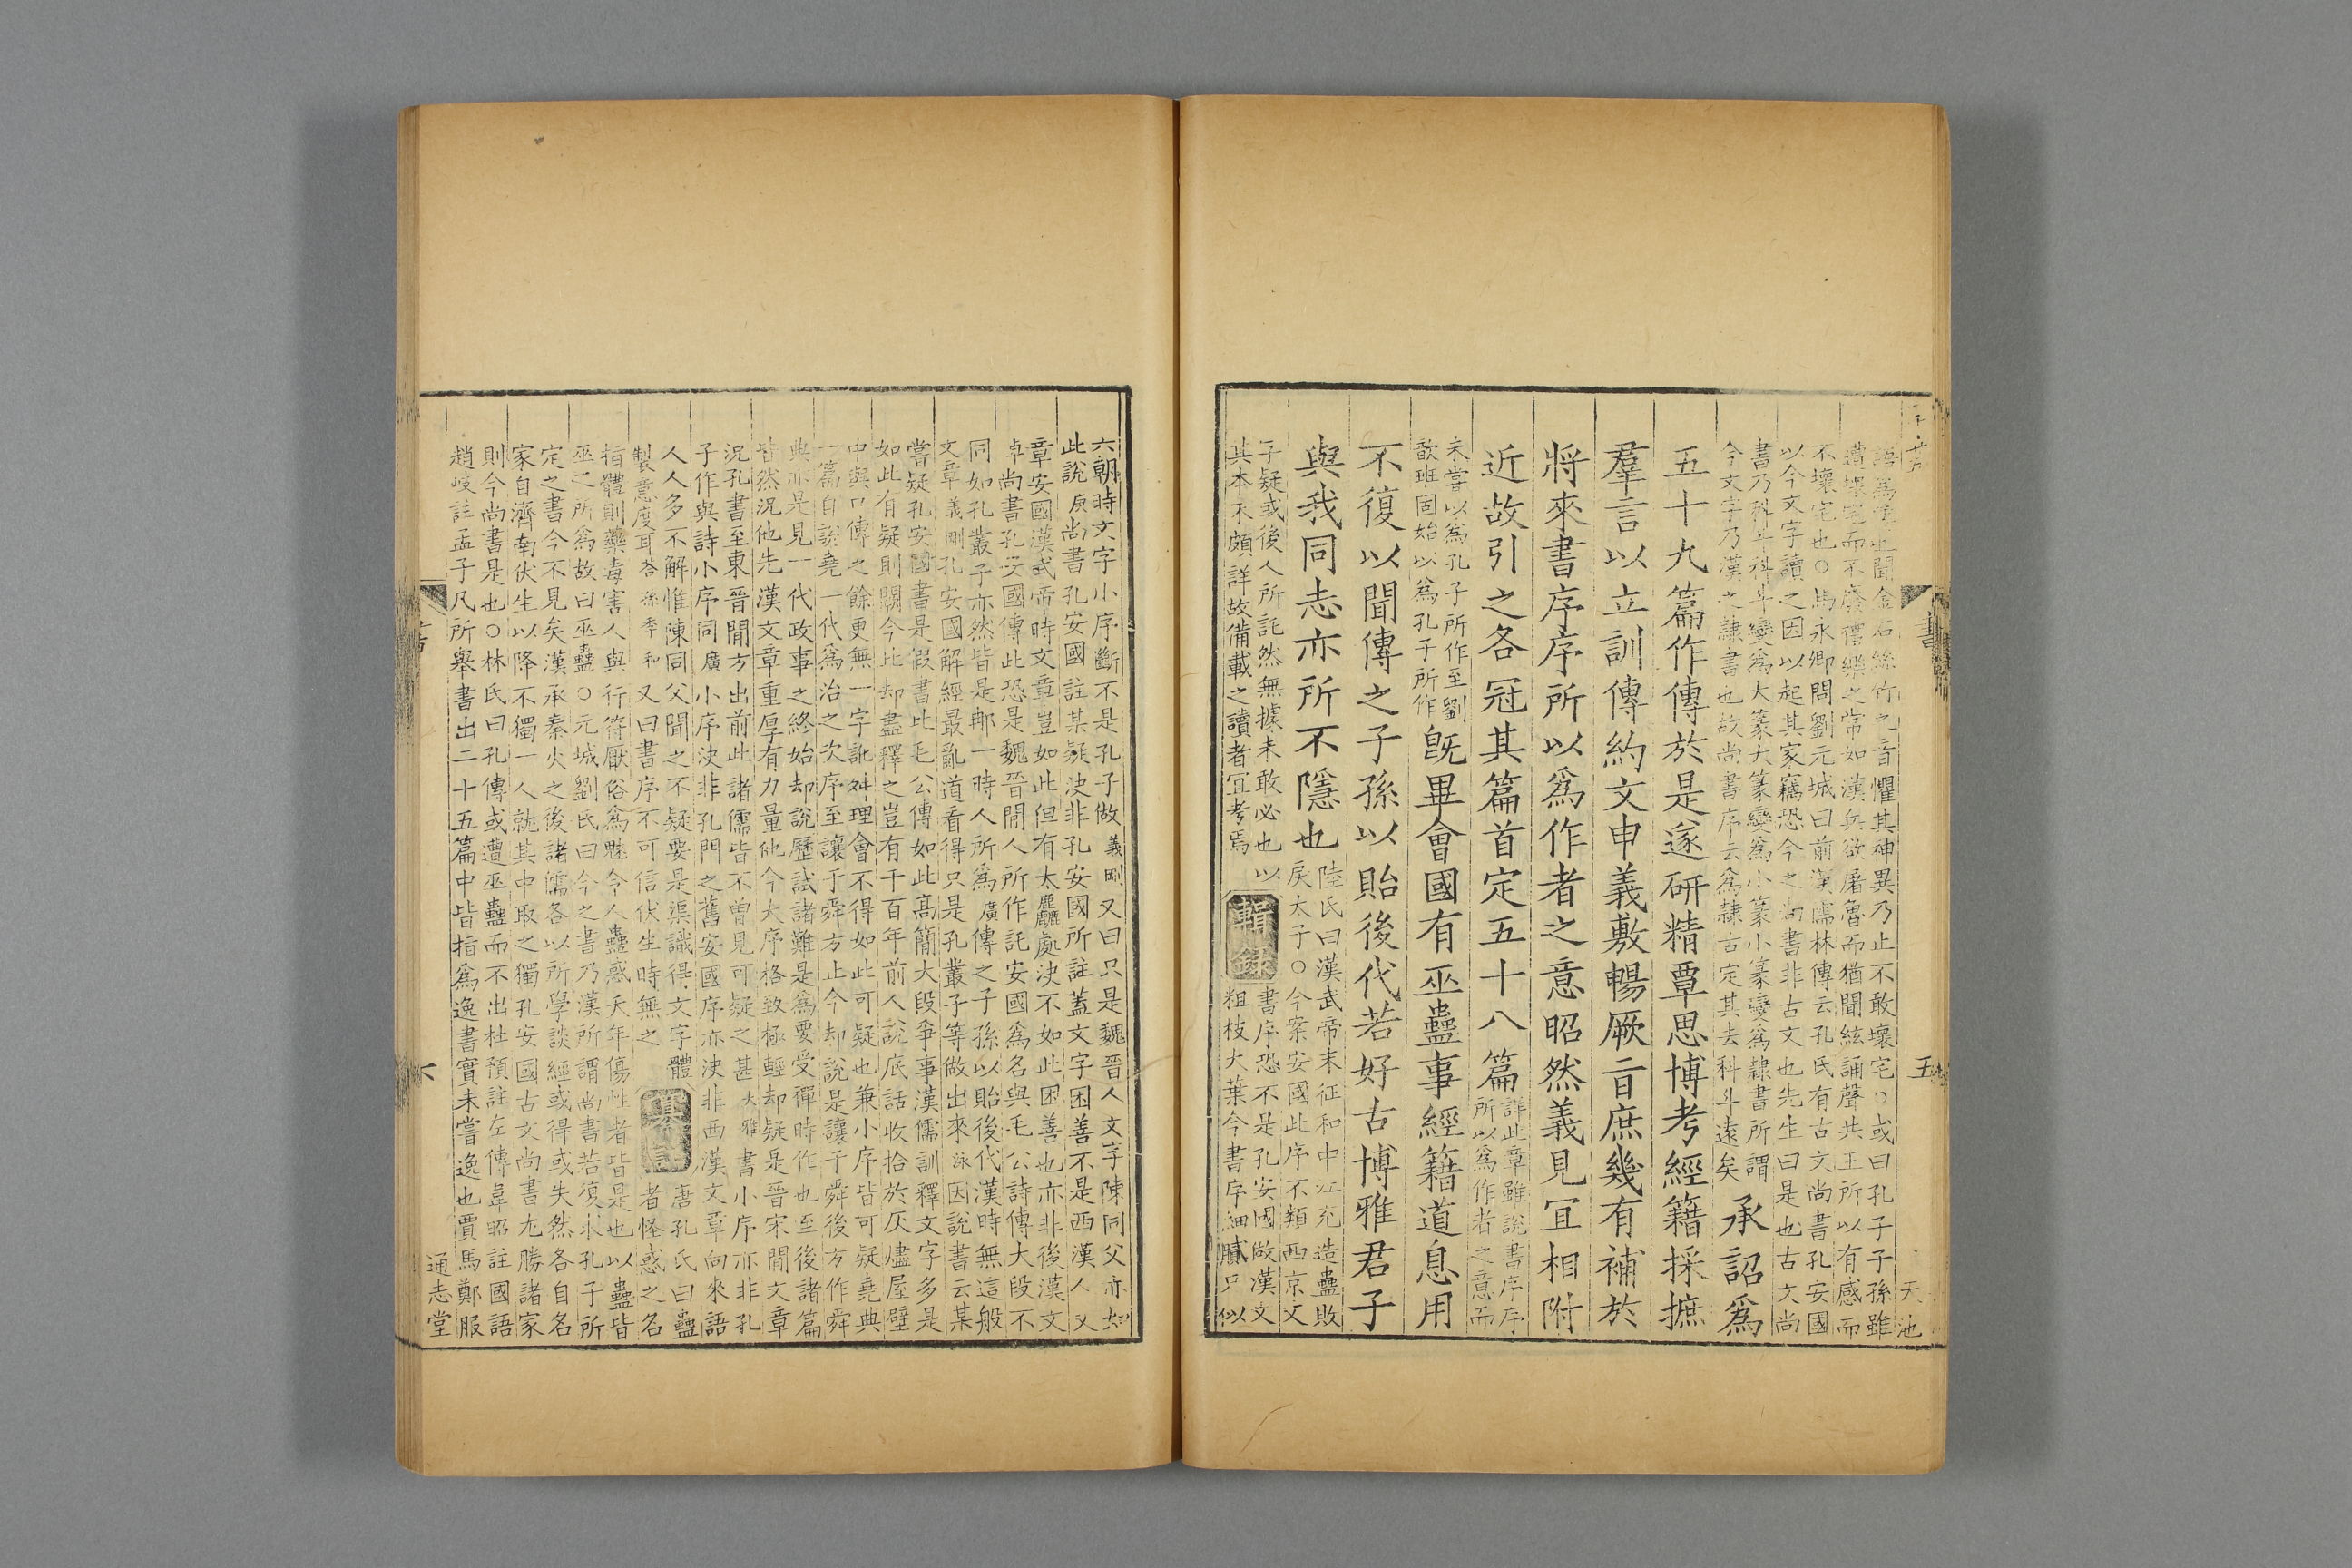 語爲虚也聞金石絲竹之音懼其神異乃止不敢壞宅○或曰孔子子孫雖
遭壞宅而不廢禮樂之常如漢兵欲屠魯而猶聞絃誦聲共王所以有感而
不壞宅也○馬永卿問劉元城曰前漢儒林傳云孔氏有古文尚書孔安國
以今文字讀之因以起其家竊恐今之尚書非古文也先生曰是也古文尚
書乃科斗科斗變爲大篆大篆變爲小篆小篆變爲隷書所謂
今文字乃漢之隷書也故尚書序云爲隷古定其去科斗遠矣
承詔爲
五十九篇作傳於是遂研精覃思博考經籍採摭
羣言以立訓傳約文申義敷暢厥旨庶幾有補於
將來書序序所以爲作者之意昭然義見宜相附
近故引之各冠其篇首定五十八篇
詳此章雖說書序序
所以爲作者之意而
未嘗以爲孔子所作至劉
歆班固始以爲孔子所作
旣畢會國有巫蠱事經籍道息用
不復以聞傳之子孫以貽後代若好古博雅君子
與我同志亦所不隱也
陸氏曰漢武帝末征和中江充造蠱敗
戾太子○今案安國此序不類西京文
字疑或後人所託然無據未敢必也以
其本不頗詳故備載之讀者宜考焉
輯錄
書序恐不是孔安國做漢文
粗枝大葉今書序細膩只似
書
五
天池
六朝時文字小序斷不是孔子做義剛又曰只是魏晉人文字陳同父亦如
此說庚尚書孔安國註某疑決非孔安國所註蓋文字困善不是西漢人文
章安國漢武帝時文章豈如此但有太麤處決不如此困善也亦非後漢文
卓尚書孔安國傳此恐是魏晉閒人所作託安國爲名與毛公詩傳大段不
同如孔叢子亦然皆是那一時人所爲廣傳之子孫以貽後代漢時無這般
文章義剛孔安國解經最亂道看得只是孔叢子等做出來泳因說書云某
嘗疑孔安國書是假書此毛公傳如此高簡大段爭事漢儒訓釋文字多是
如此有疑則闕今此却盡釋之豈有千百年前人說底話收拾於灰燼屋壁
中與口傳之餘更無一字訛舛理會不得如此可疑也兼小序皆可疑堯典
一篇自說堯一代爲治之次序至讓于舜方止今却說是讓于舜後方作舜
典亦是見一代政事之終始却說歷試諸難是爲要受禪時作也至後諸篇
皆然況他先漢文章重厚有力量他今大序格致極輕却疑是晉宋閒文章
況孔書至東晉閒方出前此諸儒皆不曾見可疑之甚大雅書小序亦非孔
子作與詩小序同廣小序決非孔門之舊安國序亦決非西漢文章向來語
人人多不解惟陳同父聞之不疑要是渠識得文字體
製意度耳荅孫季和又曰書序不可信伏生時無之
纂註
唐孔氏曰蠱
者怪惑之名
指體則藥毒害人與行符厭俗爲魅令人蠱惑夭年傷性者皆是也以蠱皆
巫之所爲故曰巫蠱○元城劉氏曰今之書乃漢所謂尚書若復求孔子所
定之書今不見矣漢承秦火之後諸儒各以所學談經或得或失然各自名
家自濟南伏生以降不獨一人就其中取之獨孔安國古文尚書尤勝諸家
則今尚書是也○林氏曰孔傳或遭巫蠱而不出杜預註左傳韋昭註國語
趙岐註孟子凡所舉書出二十五篇中皆指爲逸書實未嘗逸也賈馬鄭服
六
通志堂